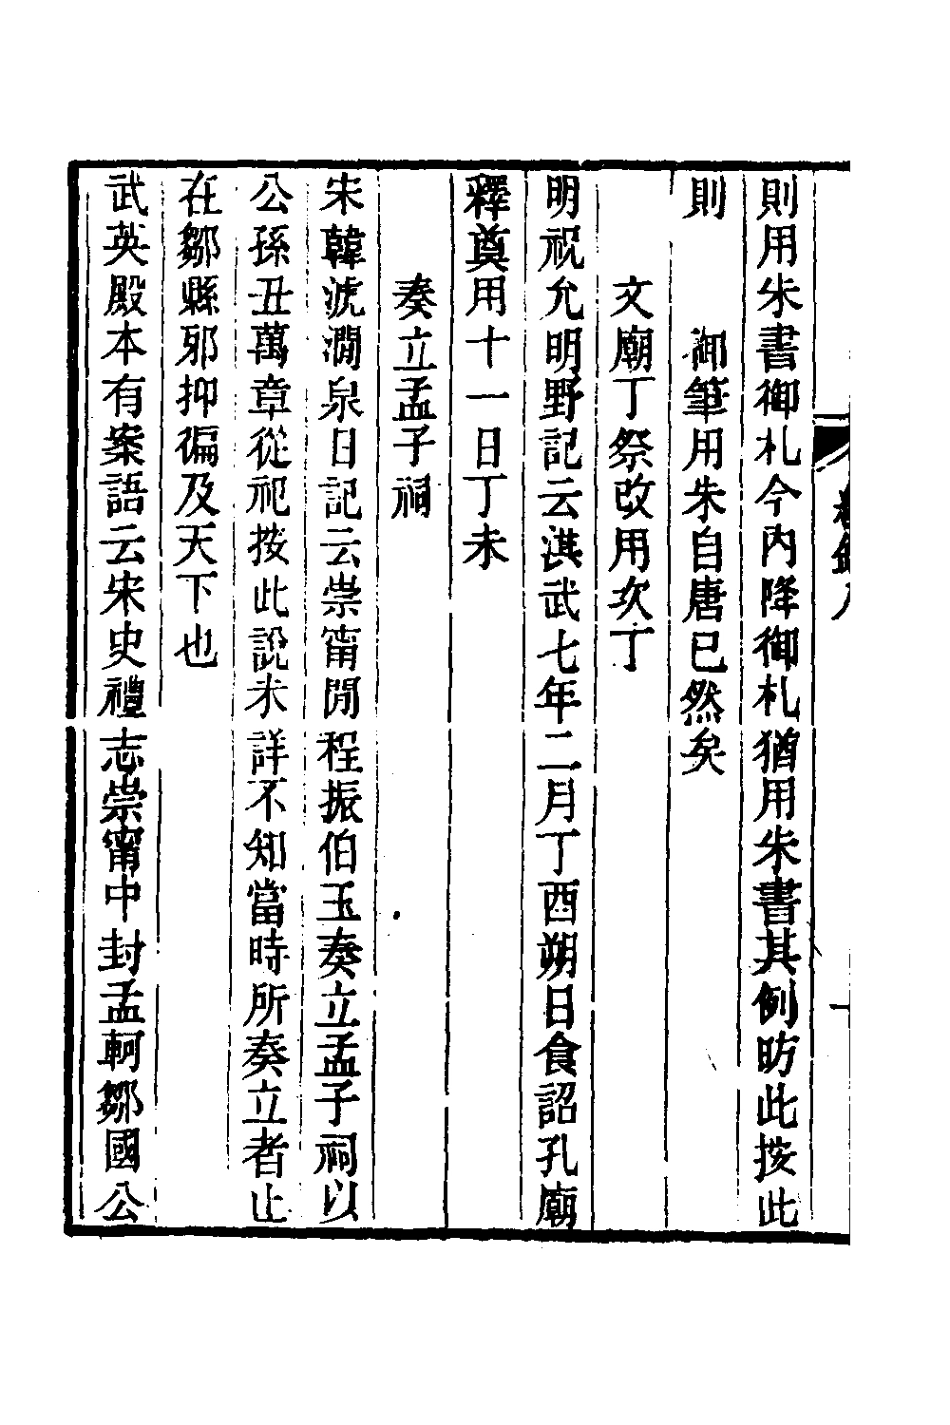 則用朱書御札今內降御札猶用朱書其例昉此按此
則　　御筆用朱自唐已然矣
文廟丁祭改用次丁
明祝允明野記云洪武七年二月丁酉朔日食詔孔廟
釋奠用十一日丁未
奏立孟子祠
宋韓淲澗泉日記云崇甯閒程振伯玉奏立孟子祠以
公孫丑萬章從祀按此說未詳不知當時所奏立者止
在鄒縣邪抑徧及天下也
武英殿本有案語云宋史禮志崇甯中封孟軻鄒國公